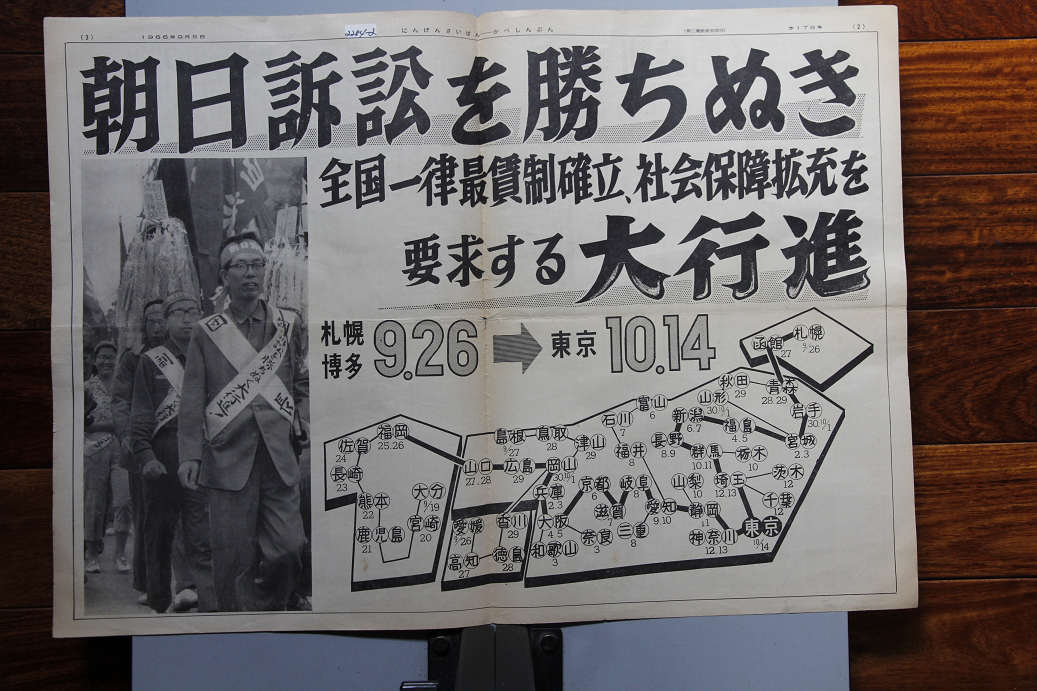 (3)
2284-2
にんげんさいばん―かべしんぶん
(2)
朝日訴訟を勝ちぬき
全国一律最賃制確立、社会保障拡充を
要求する大行進
札幌 博多 9.26 東京 10.14
札幌 9.26
函館 27
青森 28.29
岩手 30.10/1
宮城 2.3
福島 4.5
秋田 29
山形 30.10/1
新潟 6.7
長野 8.9
群馬 10.11
栃木 10
茨木 12
埼玉 12.13
千葉 12
東京 10/14
山梨 10
静岡 11
神奈川 12.13
富山 6
石川 7
福井 8
岐阜 8
愛知 9.10
三重 8
滋賀 7
京都 6
奈良 3
大阪 4.5
和歌山 3
兵庫 2.3
津山 29
岡山 30.10/1
鳥取 28
島根 9/27
広島 29
山口 27.28
愛媛 9/26
香川 29
高知 27
徳島 28
福岡 25.26
佐賀 24
長崎 23
熊本 22
鹿児島 21
宮崎 20
大分 9/19